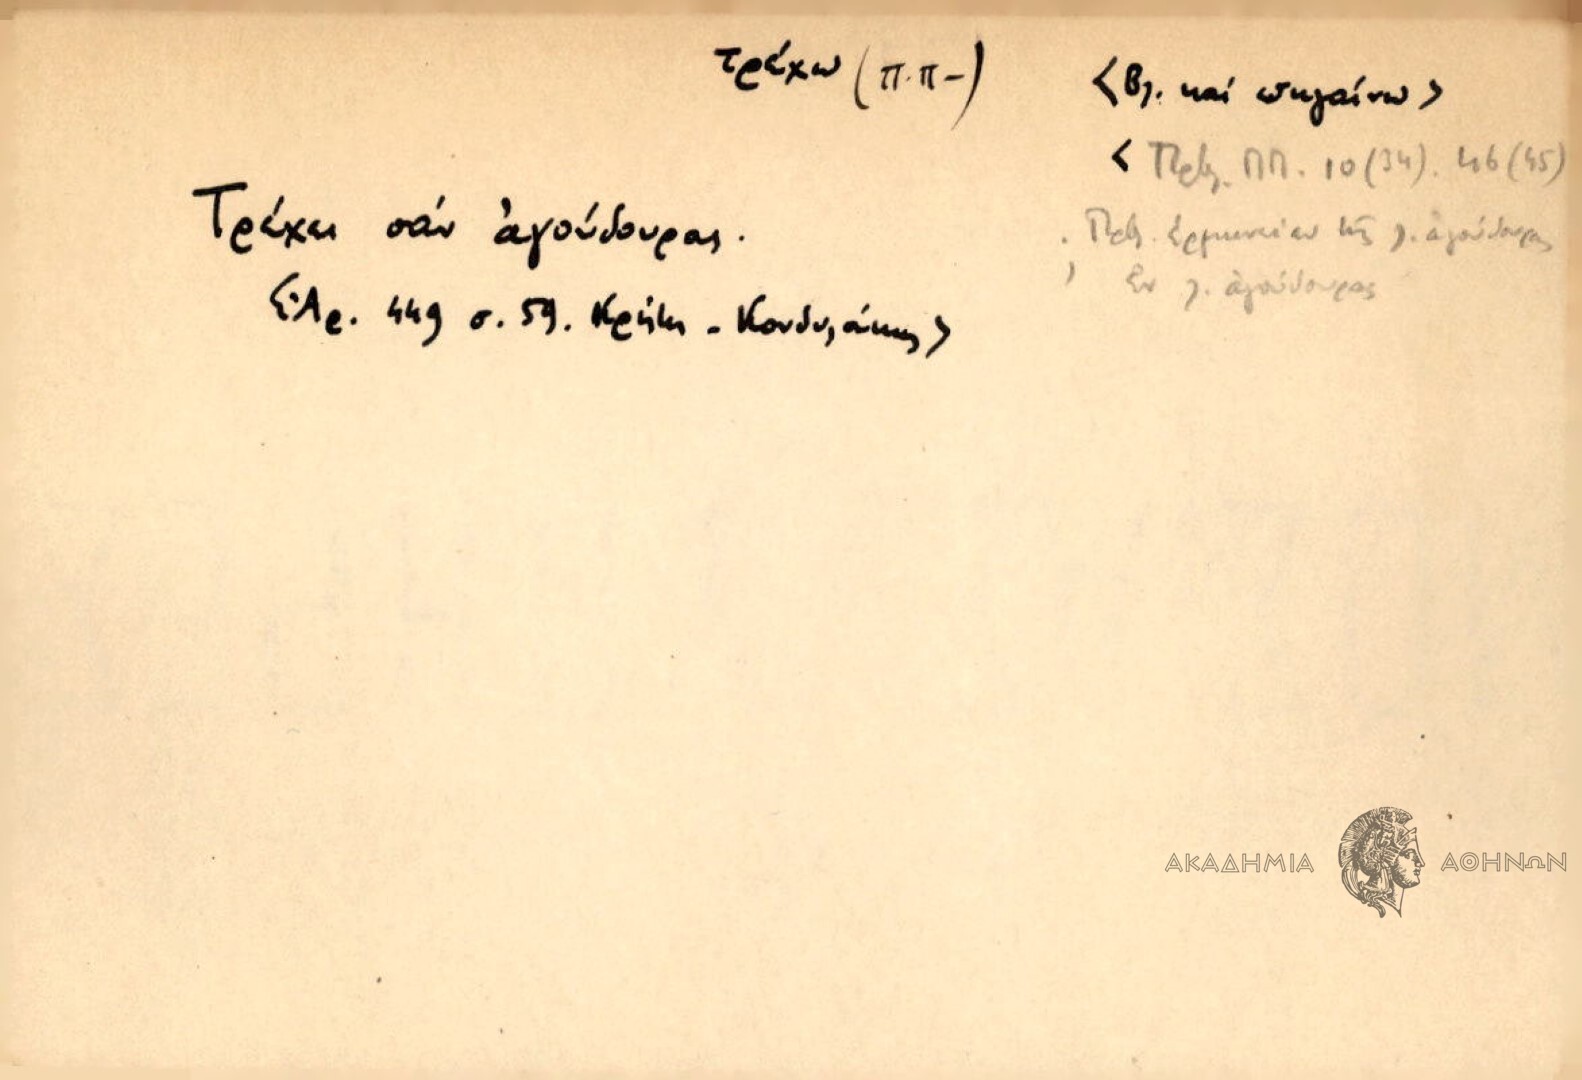 τρέχω (π.π-)
<Βλ. καί πηγαίνω>
< Πρβλ. ΠΠ. 10(34). 46(45)
Πρβλ. ἑρμηνείαν τῆς λ. ἀγούδουρας
ἐν λ. ἀγούδουρας
Τρέχει σάν ἀγούδουρας.
<Ἀρ. 449 σ. 59. Κρήτη - Κονδυλάκης>
ΑΚΑΔΗΜΙΑ ΑΘΗΝΩΝ